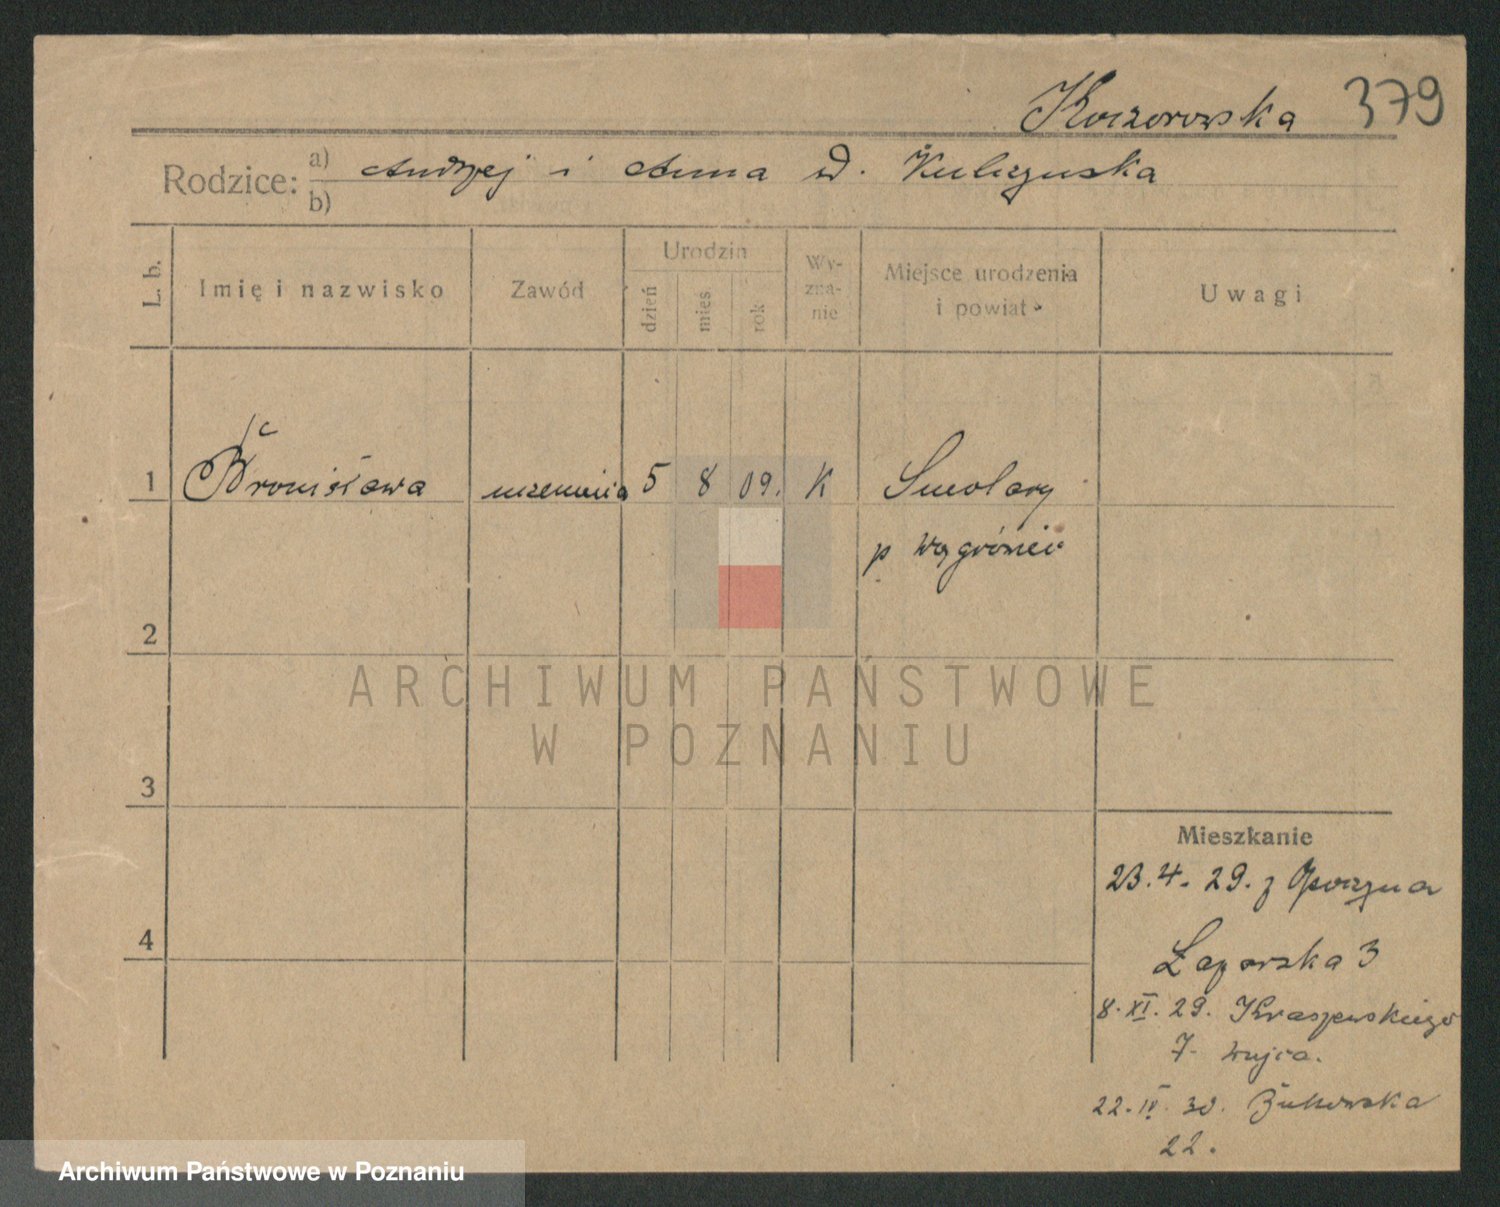 Koczorowska 379
Rodzice: a) Andrzej i Anna d. Kulczyńska
b)
L. b. Imię i nazwisko Zawód Urodzin dzień mies rok Wy-zna-nie Miejsce urodzenia i powiat Uwagi
1 Bronisława uczennica 5 8 09. K Smolary
p Wągrówiec
2
3
4
Mieszkanie
23.4.29. z
Łazarska 3
8.XI.29. Kraszewskiego
7 wujca.
22.IV.30. Bukowska
22.
ARCHIWUM PAŃSTWOWE
W POZNANIU
Archiwum Państwowe w Poznaniu